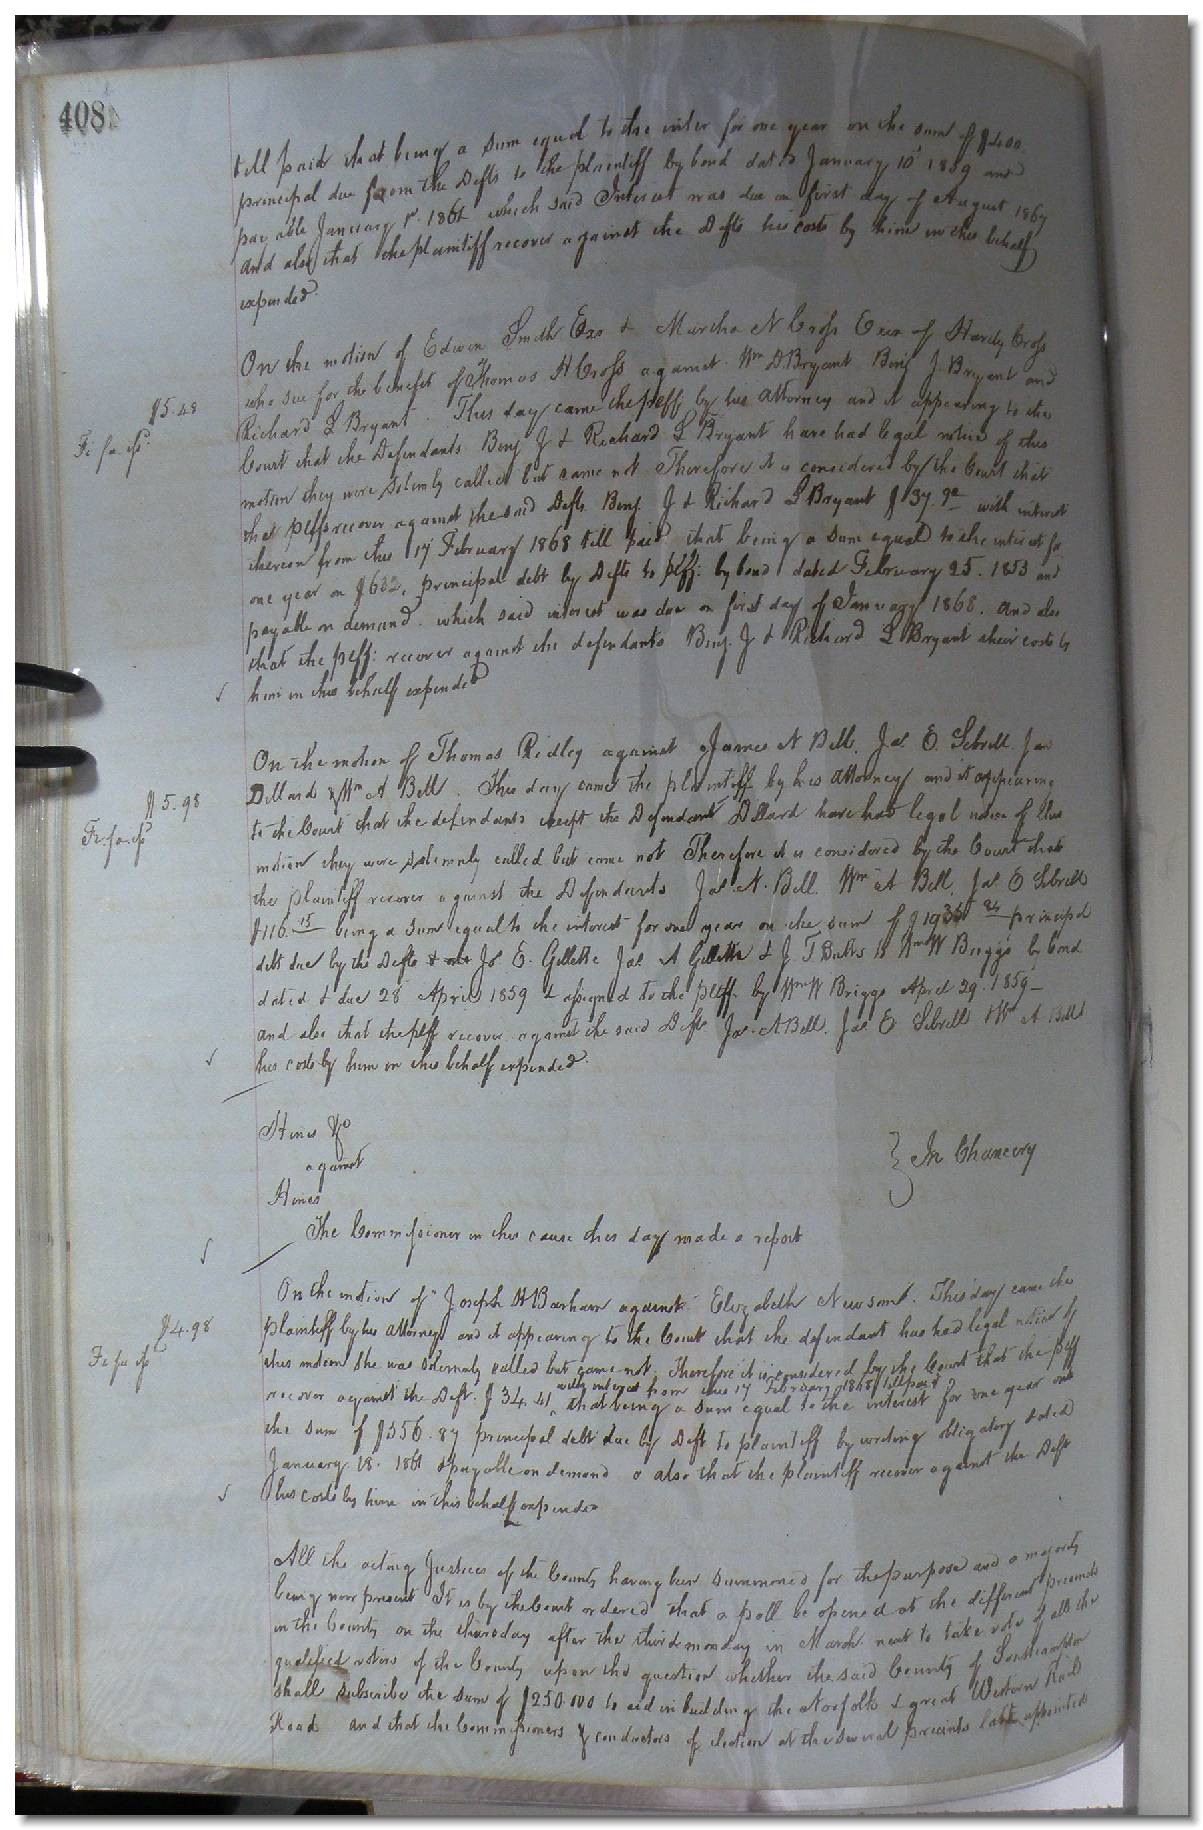 408
till paid that being a sum equal to the inter for one year on the sum of $400
principal due from the Defts to the plaintiff by bond dated January 10th 1859 and
payable January 1st 1861 which said Interest was due on first day of August 1867
and also that the plaintiff recover against the Defts his costs by him in this behalf
expended.
On the motion of Edwin Smith Exo & Martha N Cross Exix of Hardy Cross
who sue for the benefit of Thomas H Cross against Wm D Bryant Benj J Bryant and
$5.48
Richard L Bryant. This day came the peff by his Attorney and it appearing to the
Fi fa isd
Court that the Defendants Benj J & Richard L Bryant have had legal notice of this
motion they were solemly called but came not Therefore it is considered by the Court that
that peffs recover against the said Defts Benj J & Richard L Bryant $37.92 with interest
thereon from this 17 February 1868 till paid that being a sum equal to the interest for
one year on $632, principal debt by Defts to peff: by bond dated February 25. 1853 and
payable on demand. which said interest was due on first day of January 1868. and also
that the peff: recover against the defendants Benj. J & Richard L Bryant their costs by
him in this behalf expended
On the motion of Thomas Ridley against James N Bell, Jas. E. Sebrell Jas
Dillard & Wm A Bell. This day came the plaintiff by his attorney and it appearing
$5.98
to the Court that the defendants except the Defendant Dillard have had legal notice of this
Fi. fa. isd
motion they were solemnly called but came not Therefore it is considered by the Court that
the plaintiff recover against the Defendants Jas. N. Bell. Wm A Bell, Jas E Sebrell
$116.15 being a sum equal to the interest for one year on the sum of $1935 84 principal
debt due by the Defts & Jos. E. Gillette Jas A Gillette & J. T. to Wm W Briggs by bond
dated & due 28 April 1859 & assigned to the peff. by Wm W Briggs April 29. 1859—
and also that the peff recover against the said Defts Jas. A Bell. Jas E Sebrell Wm A Bell
his costs by him in this behalf expended.
Hines &c
against } In Chancery
Hines
The Commissioner in this cause this day made a report
On the motion of Joseph H Barham against Elizabeth Newsome. This day came the
$4.98
plaintiff by his attorney and it appearing to the Court that the defendant has had legal notice of
Fi fa isd
this motion she was solemnly called but came not, Therefore it is considered by the Court that the peff
with interest from this 17 February 1868 till paid
recover against the Deft. $34.41 ^ that being a sum equal to the interest for one year on
the sum of $556.87 principal debt due by Deft to plaintiff by writing obligatory dated
January 18. 1861 & payable on demand & also that the plaintiff recover against the Deft
his costs by him in this behalf expended
All the acting Justices of the County having been summoned for the purpose and a majority
being now present It is by the Court ordered that a poll be opened at the different precincts
in the County on the thursday after the third monday in March next to take vote of all the
qualified voters of the County upon the question whether the said County of Southampton
shall subscribe the sum of $250.000 to aid in building the Norfolk & great Western Rail
Road and that the Commissioners & conductors of election at the several precincts last appointed